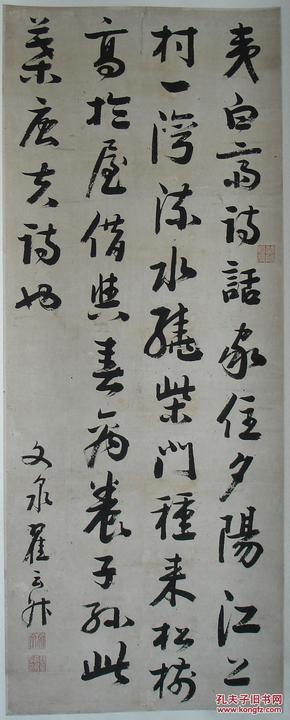 夷白齋詩話家住夕陽江上
村一灣流水繞柴門種来松樹
高於屋借與春禽養子孫此
葉唐夫詩也
文泉翟云升
孔夫子旧书网
www.kongfz.com